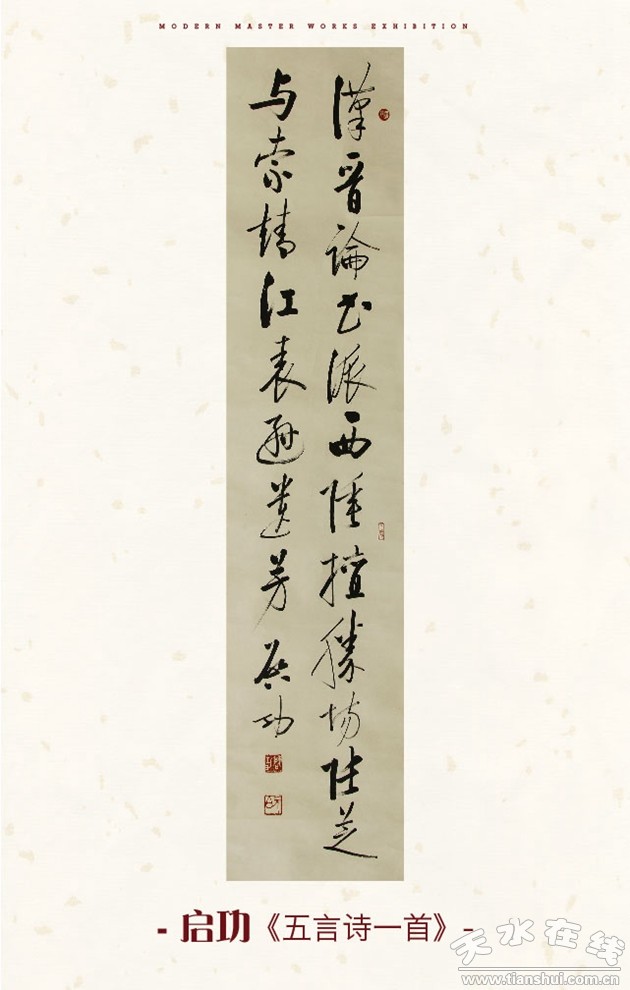 MODERN MASTER WORKS EXHIBITION
漢晋論书派西陲擅勝场张芝
与索靖江表遜遺芳启功
- 启功《五言诗一首》-
天水在线
www.tianshui.com.cn